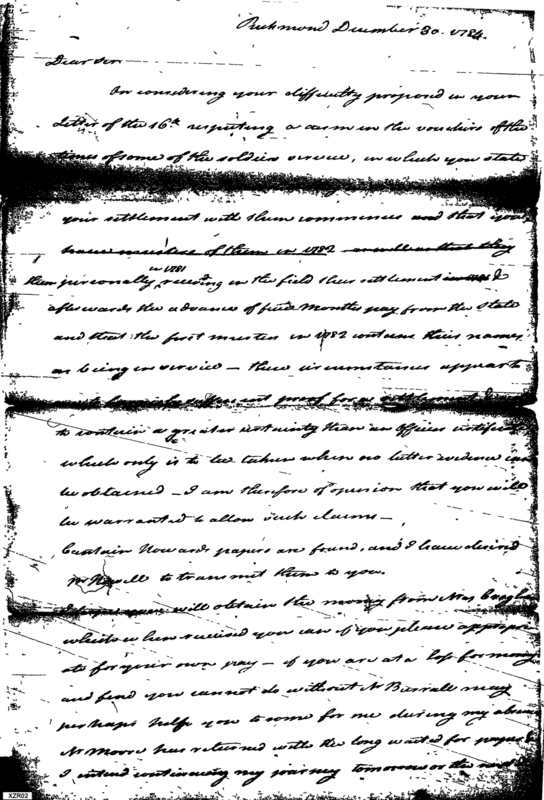 Richmond December 30. 1784.
Dear Sir
On considering your difficulty proposed in your
Letter of the 16th respecting a chasm in the vouchers of the
times of some of the soldiers service, in which you state
your settlement with them commences and that you
have musters of them in 1782 as well as that they
them personally in 1781 receiving in the field their settlement &
afterwards the advance of five Months pay from the State
and that the first muster in 1782 contains their names
as being in service – these circumstances appear to
sufficient proof for a settlement &
to contain a greater certainty than an officers certificate
which only is to be taken when no better evidence can
be obtained – I am therefore of opinion that you will
be warranted to allow such claims –
Captain Howards papers are found, and I have desired
Mr to transmit them to you.
will obtain the money from Mrs
which when received you can if you please appropri
ate for your own pay – if you are at a loss for money
and find you cannot do without Mr Burrall may
perhaps help you to some for me during my absence
Mr Moore has returned with the long waited for papers &
I intend continuing my journey tomorrow or the next
XZR02